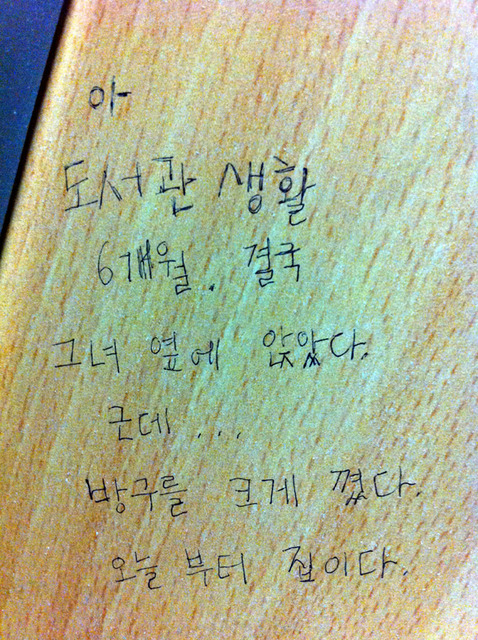 아
도서관 생활
6개월. 결국
그녀 옆에 앉았다.
근데...
방구를 크게 꼈다.
오늘 부터 집이다.